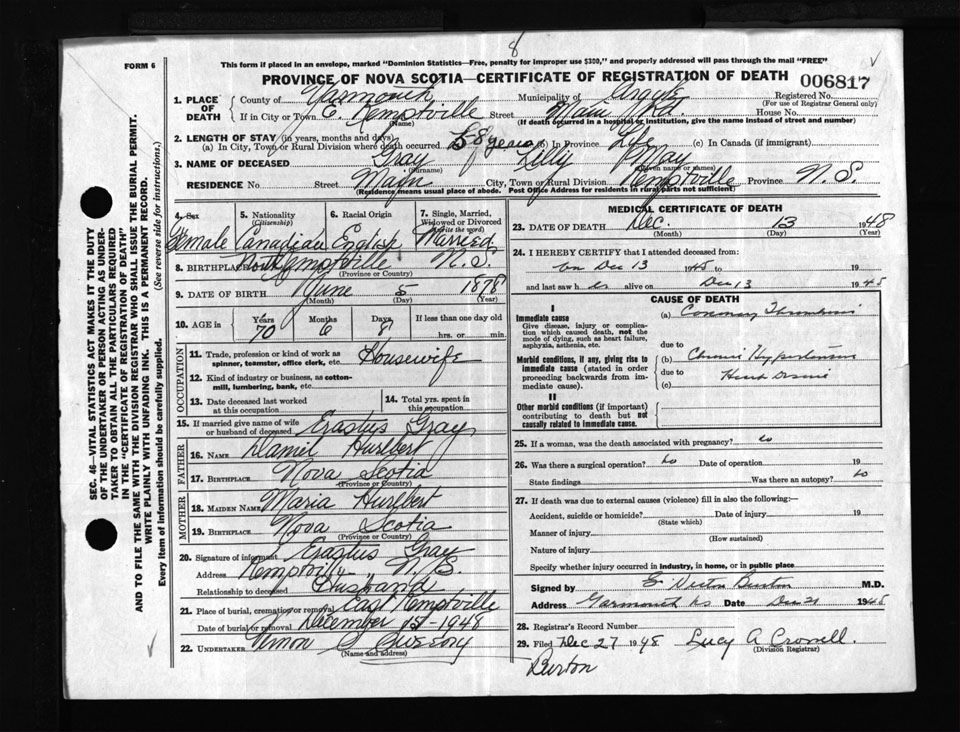 8
FORM 6
This form if placed in an envelope, marked "Dominion Statistics—Free, penalty for improper use $300," and properly addressed will pass through the mail "FREE"
PROVINCE OF NOVA SCOTIA—CERTIFICATE OF REGISTRATION OF DEATH
006817
1. PLACE OF DEATH
County of Yarmouth Municipality of Argyle Registered No.
(For use of Registrar General only)
If in City or Town E. Kemptville Street Main Rd. House No.
(Name) (If death occurred in a hospital or institution, give the name instead of street and number)
2. LENGTH OF STAY (in years, months and days)
(a) In City, Town or Rural Division where death occurred 58 years (b) In Province Life (c) In Canada (if immigrant)
3. NAME OF DECEASED Gray Lilly May
(Surname) (Given name or names)
RESIDENCE No Street Main City, Town or Rural Division Kemptville Province N. S.
(Residence means usual place of abode. Post Office Address for residents in rural parts not sufficient)
4. Sex
5. Nationality (Citizenship)
6. Racial Origin
7. Single, Married, Widowed or Divorced (write the word)
Female Canadian English Married
8. BIRTHPLACE Kemptville N. S.
(Province or Country)
9. DATE OF BIRTH June 5 1878
(Month) (Day) (Year)
10. AGE in Years Months Days If less than one day old
70 6 8 hrs. or min.
OCCUPATION
11. Trade, profession or kind of work as spinner, teamster, office clerk, etc. Housewife
12. Kind of industry or business, as cotton-mill, lumbering, bank, etc.
13. Date deceased last worked at this occupation
14. Total yrs. spent in this occupation
15. If married give name of wife or husband of deceased Erastus Gray
FATHER
16. NAME Daniel Hurlbert
17. BIRTHPLACE Nova Scotia
(Province or Country)
MOTHER
18. MAIDEN NAME Maria Hurlbert
19. BIRTHPLACE Nova Scotia
(Province or Country)
20. Signature of informant Erastus Gray
Address Kemptville N. S.
Relationship to deceased Husband
21. Place of burial, cremation or removal East Kemptville
Date of burial or removal December 1948
22. UNDERTAKER Vernon
(Name and address)
MEDICAL CERTIFICATE OF DEATH
23. DATE OF DEATH Dec. 13 1948
(Month) (Day) (Year)
24. I HEREBY CERTIFY that I attended deceased from:
on Dec 13 1948 to 19
and last saw her alive on Dec 13 1948
CAUSE OF DEATH
I
Immediate cause
Give disease, injury or complication which caused death, not the mode of dying, such as heart failure, asphyxia, asthenia, etc.
(a) Coronary Thrombosis
due to
Morbid conditions, if any, giving rise to immediate cause (stated in order proceeding backwards from immediate cause).
(b) Chronic Hypertension
due to Heart Disease
(c)
II
Other morbid conditions (if important) contributing to death but not causally related to immediate cause.
25. If a woman, was the death associated with pregnancy? no
26. Was there a surgical operation? no Date of operation 19
State findings Was there an autopsy? no
27. If death was due to external causes (violence) fill in also the following:—
Accident, suicide or homicide? Date of injury 19
(State which)
Manner of injury
(How sustained)
Nature of injury
Specify whether injury occurred in industry, in home, or in public place
Signed by Burton M.D.
Address Yarmouth NS Date Dec 21 1948
28. Registrar's Record Number
29. Filed Dec 27 1948 Lucy A Crowell.
(Division Registrar)
Burton
SEC. 46—VITAL STATISTICS ACT MAKES IT THE DUTY
OF THE UNDERTAKER OR PERSON ACTING AS UNDERTAKER TO OBTAIN ALL THE PARTICULARS REQUIRED
IN THE "CERTIFICATE OF REGISTRATION OF DEATH"
AND TO FILE THE SAME WITH THE DIVISION REGISTRAR WHO SHALL ISSUE THE BURIAL PERMIT.
WRITE PLAINLY WITH UNFADING INK. THIS IS A PERMANENT RECORD.
Every item of information should be carefully supplied. (See reverse side for instructions.)